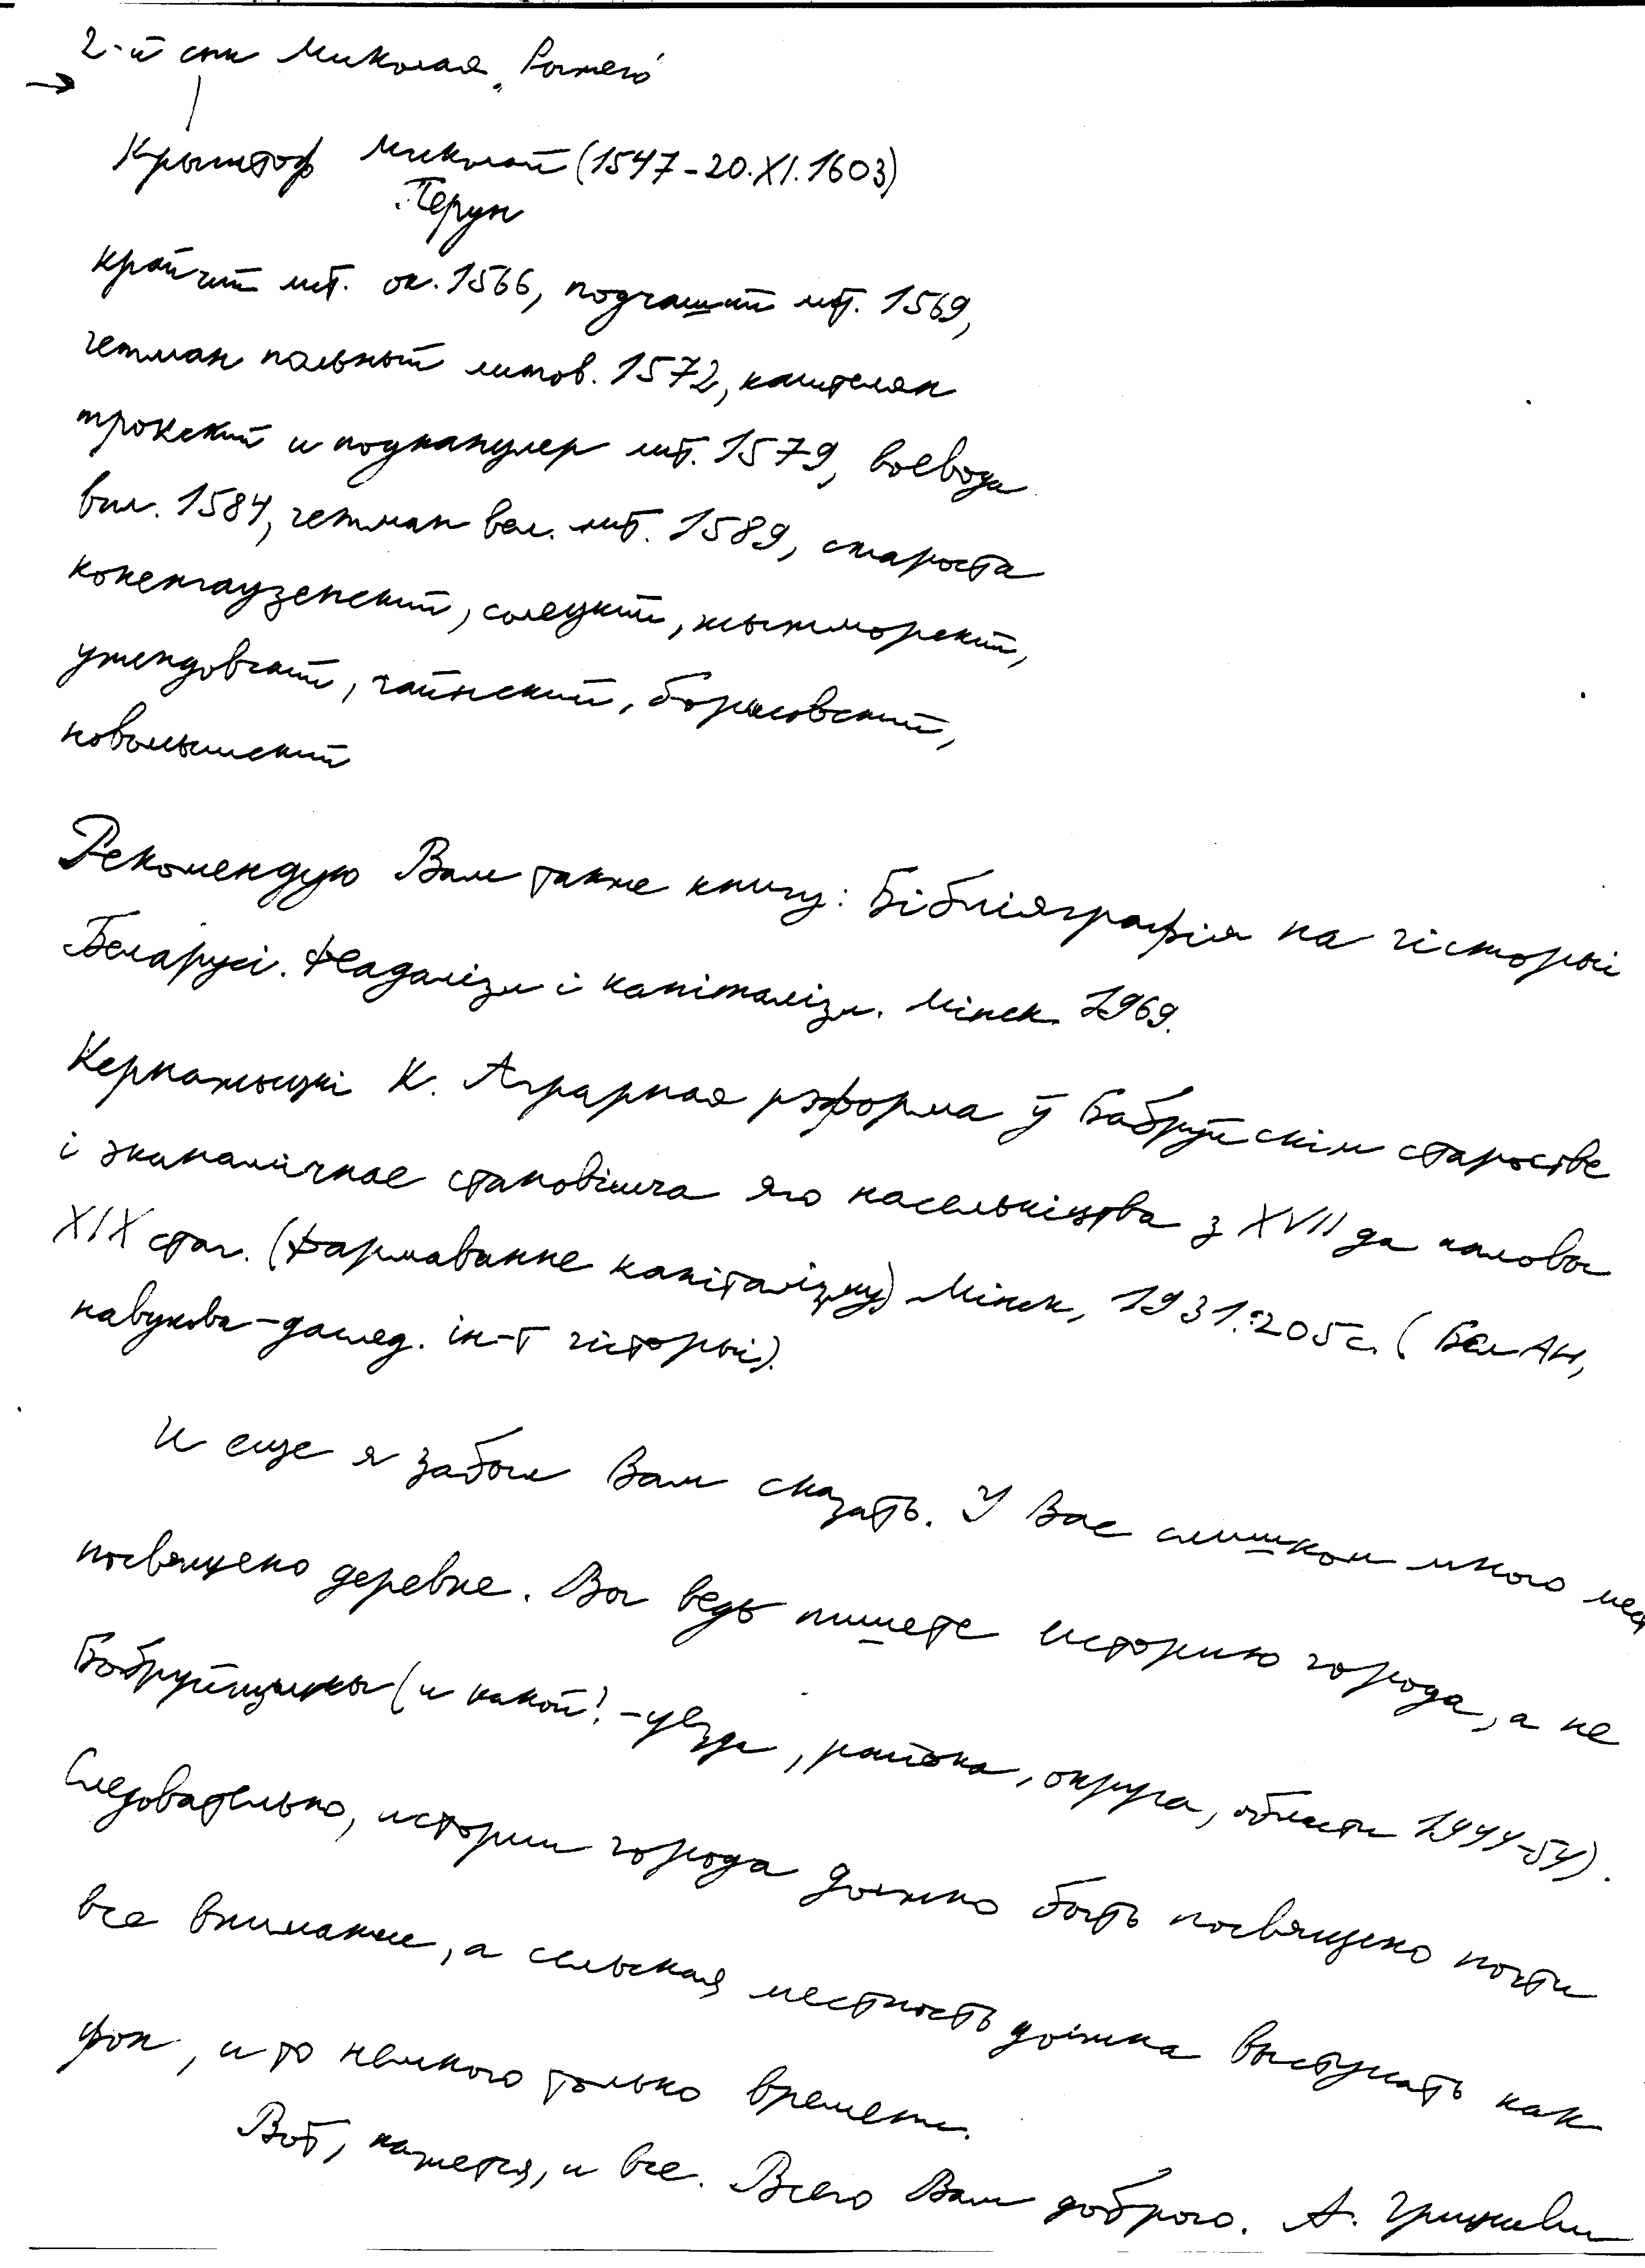 2-й сын Миколая „Рыжего“
→
Крыштоф Миколай (1547-20.XI.1603)
„Перун
крайчий лит. ок. 1566, подчаший лит. 1569,
гетман польный литов. 1572, каштелян
трокский и подканцлер лит. 1579, воевода
вил. 1584, гетман вел. лит. 1589, староста
кокенгаузенский, солецкий, жыжморский,
ужендовский, гайнский, борисовский,
новомышский
Рекомендую Вам также книгу: Бібліяграфія па гісторыі
Беларусі. Феадалізм і капіталізм. Мінск 1969.
Кернажыцкі К. Аграрная рэформа ў Бабруйскім старостве
і эканамічнае становішча яго насельніцтва з XVII да паловы
XIX стаг. (Фармаванне капіталізму) Мінск, 1931. 205 с. (БелАН,
навукова-дослед. ін-т гісторыі).
И еще я забыл Вам сказать. У Вас слишком много мест
посвящено деревне. Вы ведь пишете историю города, а не
Бобруйщины (и какой! - уезда, района, округа, области 1944-54).
Следовательно, истории города должно быть посвящено почти
все внимание, а сельская местность должна выступать как
фон, и то немного только времени.
Вот, кажется, и все. Всего Вам доброго. А. Грицкевич